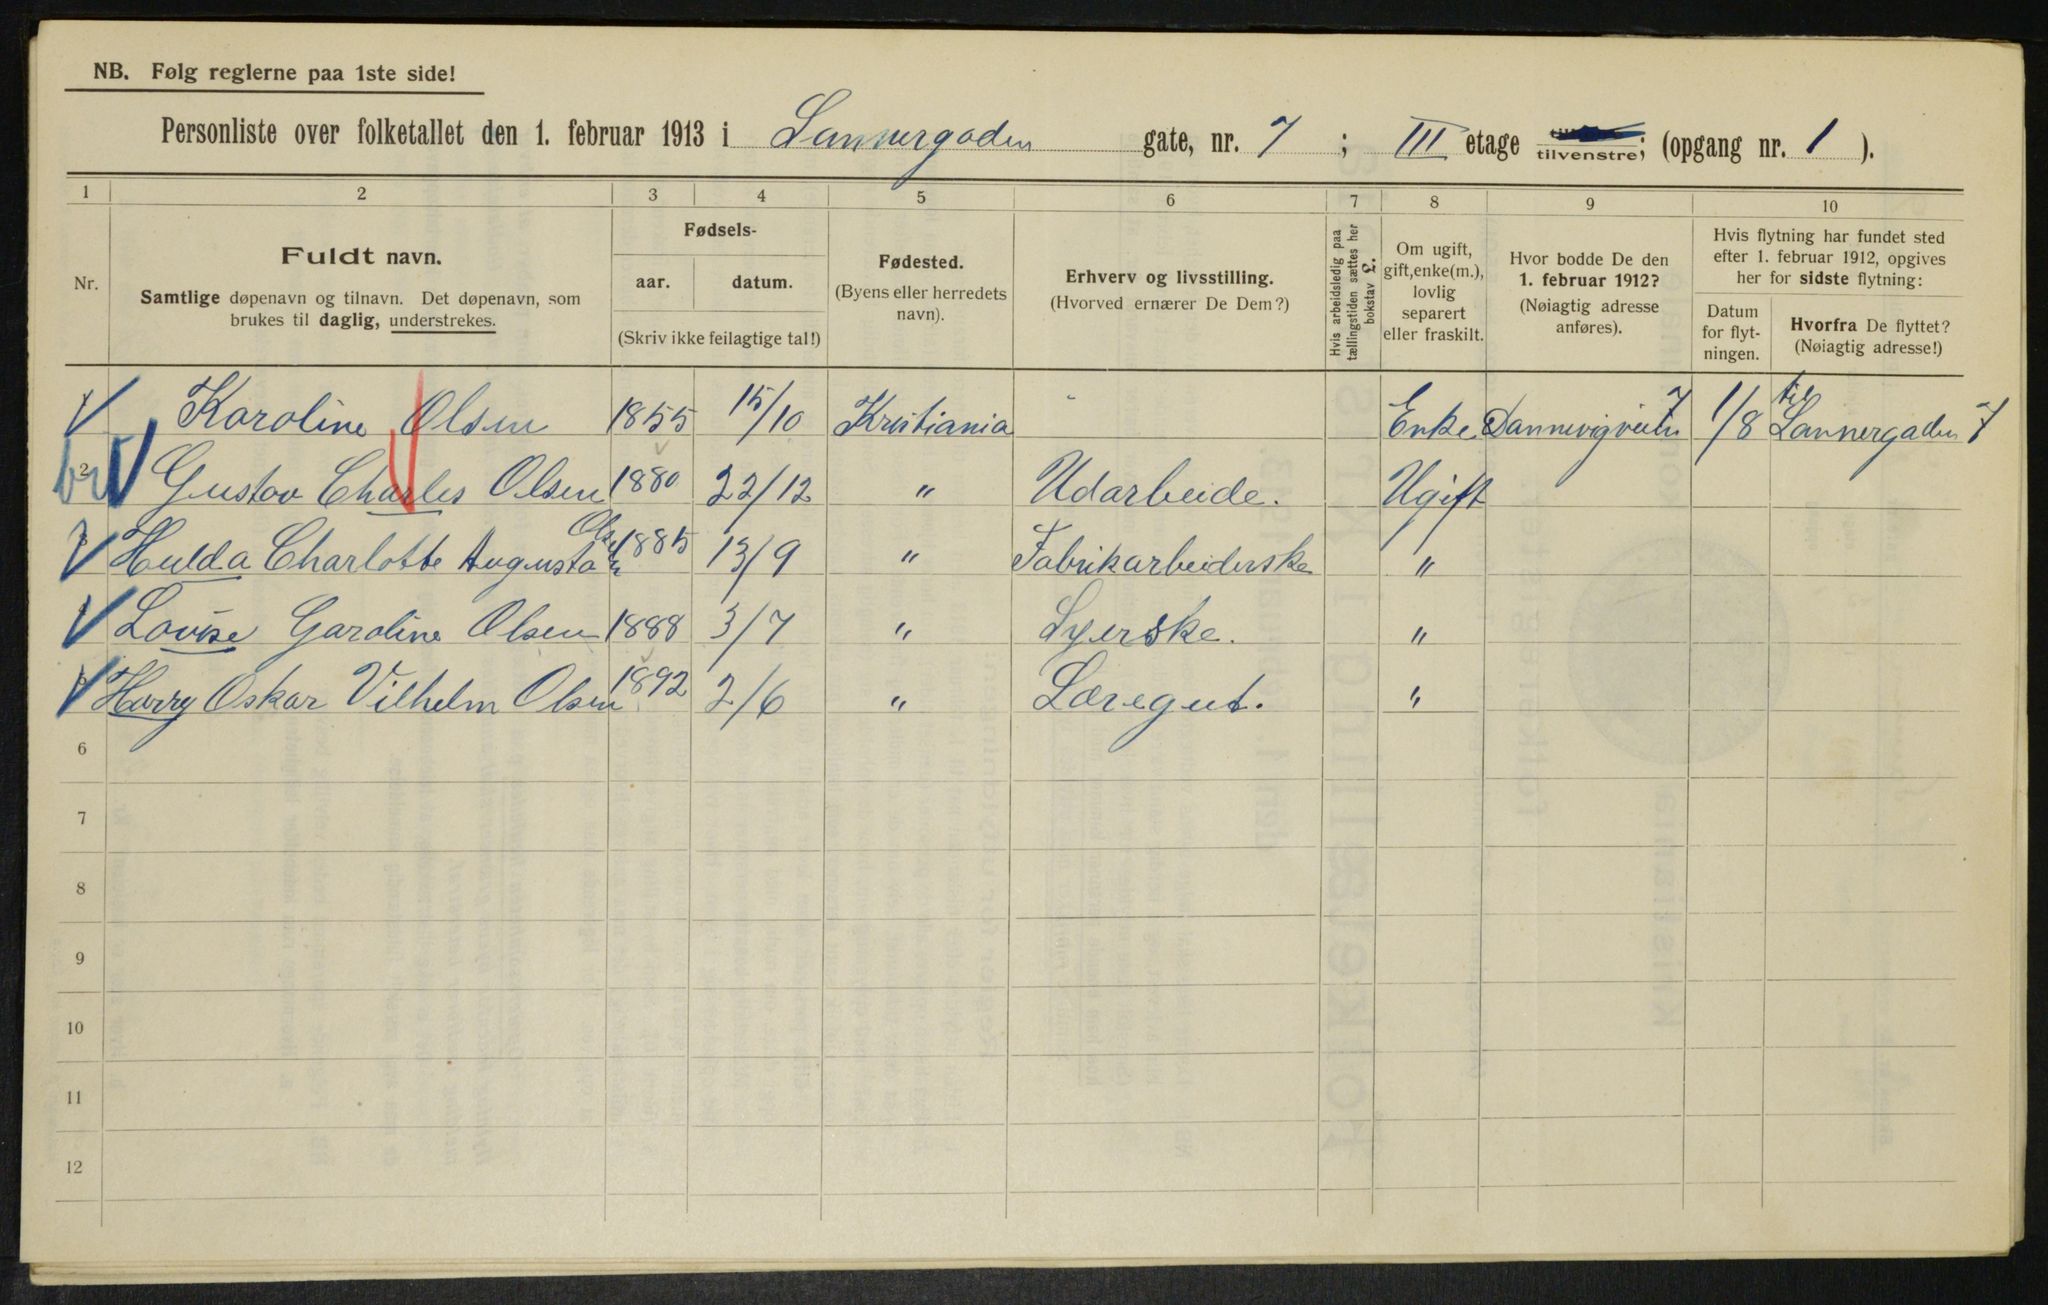 NB. Følg reglerne paa 1ste side!
Personliste over folketallet den 1. februar 1913 i Sannergaden gate, nr. 7 ; III etage tilvenstre; (opgang nr. 1 ).
1 2 3 4 5 6 7 8 9 10
Nr.
Fuldt navn.
Samtlige døpenavn og tilnavn. Det døpenavn, som
brukes til daglig, understrekes.
Fødsels-
aar. datum.
(Skriv ikke feilagtige tal!)
Fødested.
(Byens eller herredets
navn).
Erhverv og livsstilling.
(Hvorved ernærer De Dem?)
Hvis arbeidsledig paa
tællingstiden sættes her
bokstav £.
Om ugift,
gift, enke(m.),
lovlig
separert
eller fraskilt.
Hvor bodde De den
1. februar 1912?
(Nøiagtig adresse
anføres).
Hvis flytning har fundet sted
efter 1. februar 1912, opgives
her for sidste flytning:
Datum
for flyt-
ningen.
Hvorfra De flyttet?
(Nøiagtig adresse!)
Karoline Olsen 1855 15/10 Kristiania Enke Dannevigveien 7 1/8 til Sannergaden 7
2 Gustav Charles Olsen 1880 22/12 " Udarbeide. Ugift
3 Hulda Charlotte Augusta Olsen 1885 13/9 " Fabrikarbeiderske "
Lovise Caroline Olsen 1888 3/7 " Syerske. "
Harry Oskar Vilhelm Olsen 1892 2/6 " Læregut. "
6
7
8
9
10
11
12